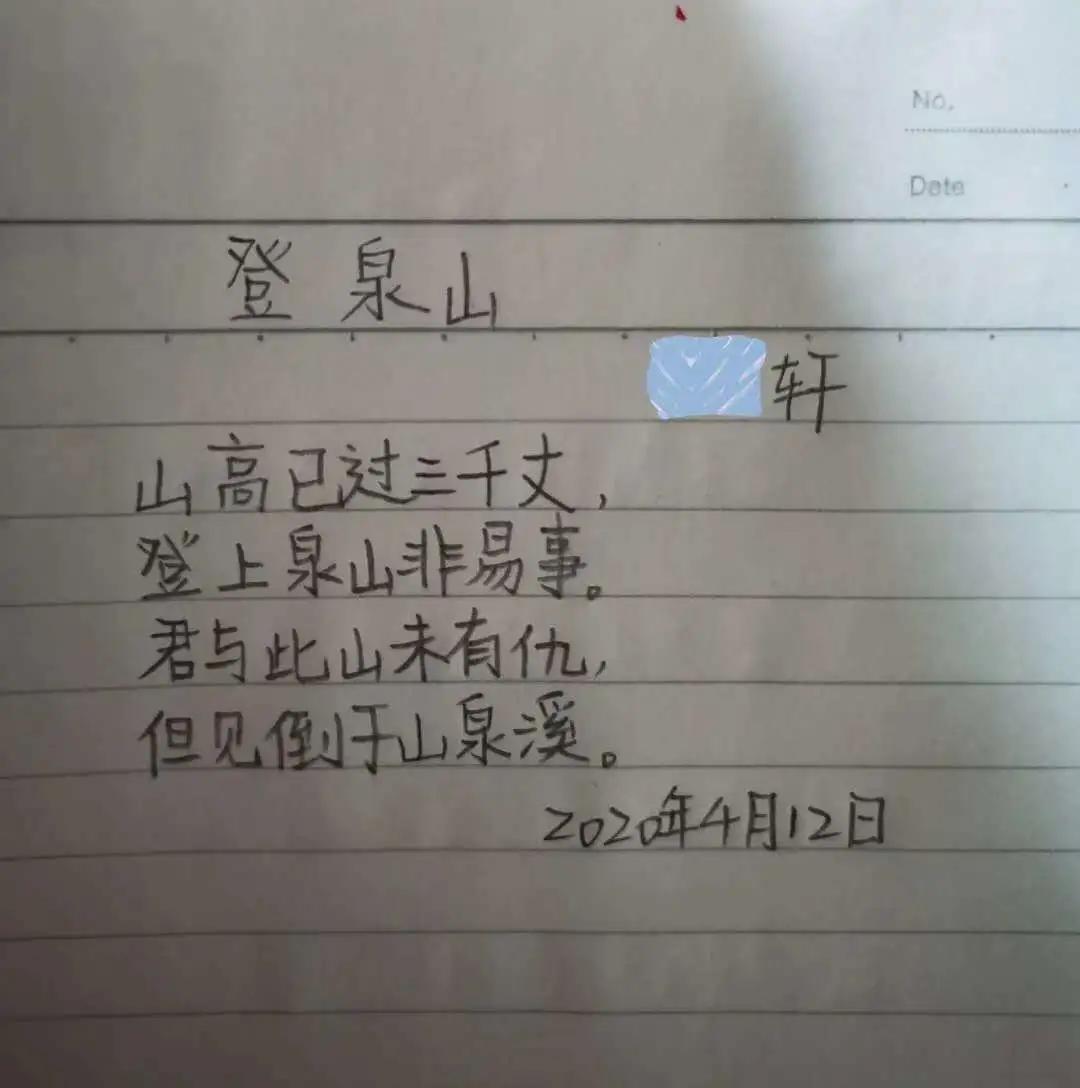 No.
Date
登泉山
轩
山高已过三千丈,
登上泉山非易事。
君与此山未有仇,
但见倒于山泉溪。
2020年4月12日